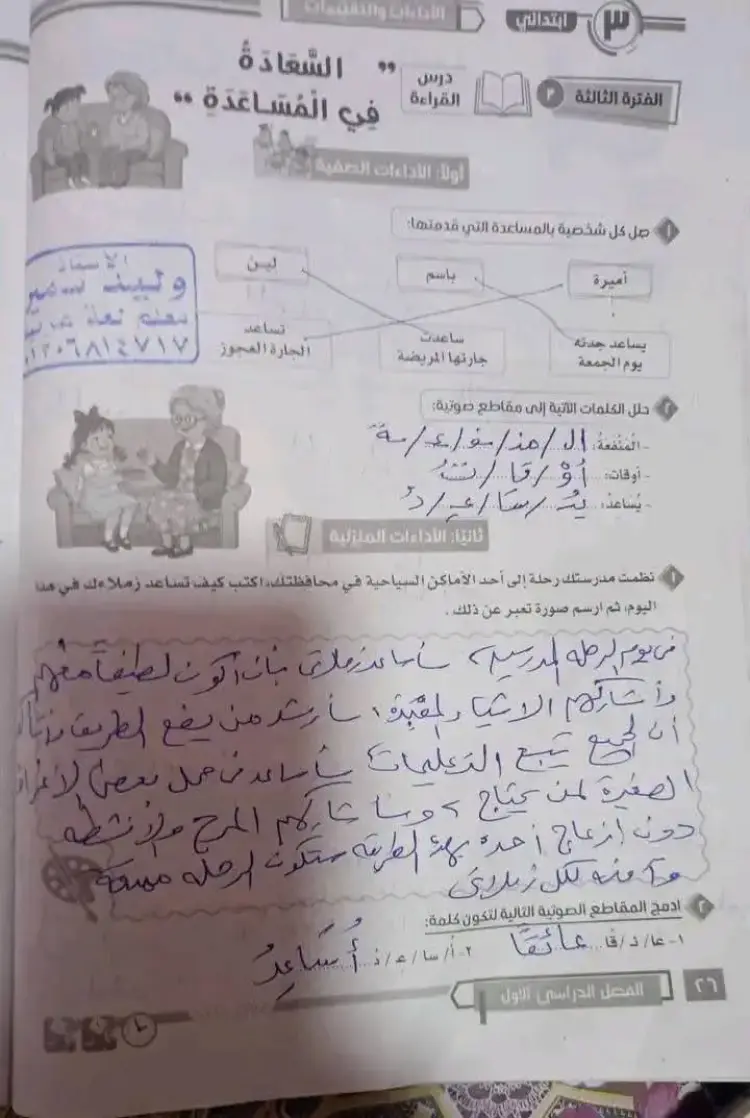 الأداءات والتقييمات
٣ ابتدائي
الفترة الثالثة ٣
درس القراءة
" السَّعَادَةُ
فِي الْمُسَاعَدَةِ "
أولًا: الأداءات الصفية
١ صل كل شخصية بالمساعدة التي قدمتها:
أميرة
باسم
لين
يساعد جدته
يوم الجمعة
ساعدت
جارتها المريضة
تساعد
الجارة العجوز
الأستاذ
وليد سمير
معلم لغة عربية
٠١٢٠٦٨١٤٧١٧
٢ حلل الكلمات الآتية إلى مقاطع صوتية:
- المنفعة: الـ/منـ/فـ/عـ/ـة
- أوقات: أَوْ/قَا/تُ
- يُساعد: يُـ/سَا/عِـ/دُ
ثانيًا: الأداءات المنزلية
١ نظمت مدرستك رحلة إلى أحد الأماكن السياحية في محافظتك، اكتب كيف تساعد زملاءك في هذا
اليوم، ثم ارسم صورة تعبر عن ذلك.
في يوم الرحله المدرسية، سأساعد زملائي بأن أكون لطيفًا معهم
وأشاركهم الاشياء المفيدة، سأرشد من يضع الطريق
أن الجميع يتبع التعليمات سأساعد في حمل بعض الأغراض
الصغيرة لمن يحتاج، وسأشاركهم المرح والأنشطة
دون إزعاج أحد، بهذه الطريقه ستكون الرحله ممتعة
وآمنه لكل زملائي
٢ ادمج المقاطع الصوتية التالية لتكون كلمة:
١- عا/ئـ/قًا عَائِقًا ٢- أُ/سا/عِـ/دُ أُسَاعِدُ
٢٦ الفصل الدراسي الأول